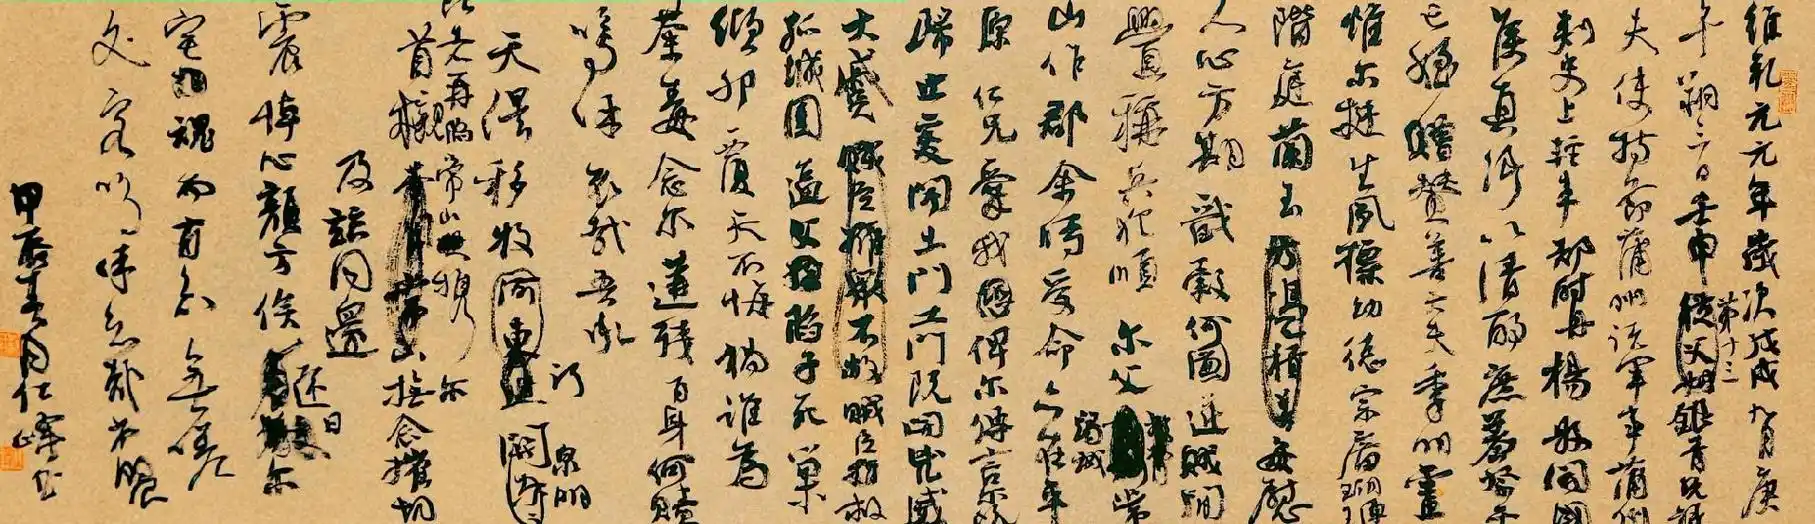 維乾元元年歲次戊戌九月庚
午朔三日壬申第十三從父銀青光祿
夫使持節蒲州諸軍事蒲州
刺史上輕車都尉丹楊縣開國
侯真卿以清酌庶羞祭于
亡姪贈贊善大夫季明靈
惟爾挺生夙標幼德宗廟瑚璉
階庭蘭玉方憑積善每慰
人心方期戩穀何圖逆賊間
釁稱兵犯順爾父竭誠常
山作郡余時受命亦在平
原仁兄愛我俾爾傳言爾既
歸止爰開土門土門既開凶威
大蹙賊臣擁眾不救賊臣擁救
孤城圍逼父擒陷子死巢
傾卵覆天不悔禍誰為
荼毒念爾遘殘百身何贖
嗚呼哀哉吾承
天澤移牧河東近河關泉明
比者再陷常山攜爾
首櫬撫念摧切
及茲同還
震悼心顏方俟遠日爾
宅魂而有知無嗟
久客嗚呼哀哉尚饗
甲辰春月任峰書